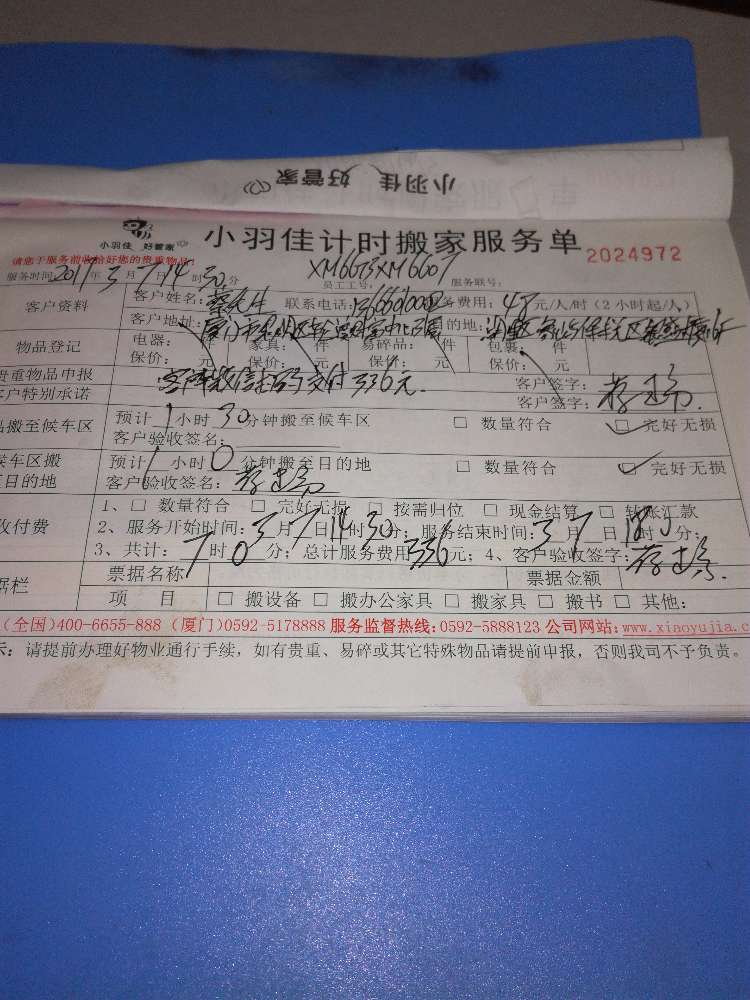 小羽佳 好管家
小羽佳 好管家
小羽佳计时搬家服务单 2024972
请您于服务前收拾好您的贵重物品!
服务时间: 2017年3月7日14时30分 员工工号: XM6673XM6607 服务联号:
客户资料 客户姓名: 联系电话: 服务费用: 48元/人/时(2小时起/人)
客户地址: 目的地:
物品登记 电器: 件 家具: 件 易碎品: 件 包裹: 件
保价: 元 保价: 元 保价: 元 保价: 元
贵重物品申报 客户微信扫码支付336元. 客户签字:
客户特别承诺 客户签字:
品搬至候车区 预计1小时30分钟搬至候车区 □ 数量符合 ☑ 完好无损
客户验收签名:
候车区搬 预计1小时0分钟搬至目的地 □ 数量符合 ☑ 完好无损
至目的地 客户验收签名:
收付费 1、□ 数量符合 □ 完好无损 □ 按需归位 □ 现金结算 □ 转账汇款
2、服务开始时间: 3月7日14时30分; 服务结束时间: 3月7日18时 分;
3、共计: 7时0分; 总计服务费用336元; 4、客户验收签字:
据栏 票据名称 票据金额
项 目 □ 搬设备 □ 搬办公家具 □ 搬家具 □ 搬书 □ 其他:
(全国)400-6655-888 (厦门)0592-5178888 服务监督热线:0592-5888123 公司网站:www.xiaoyujia.c
示: 请提前办理好物业通行手续, 如有贵重、易碎或其它特殊物品请提前申报, 否则我司不予负责。